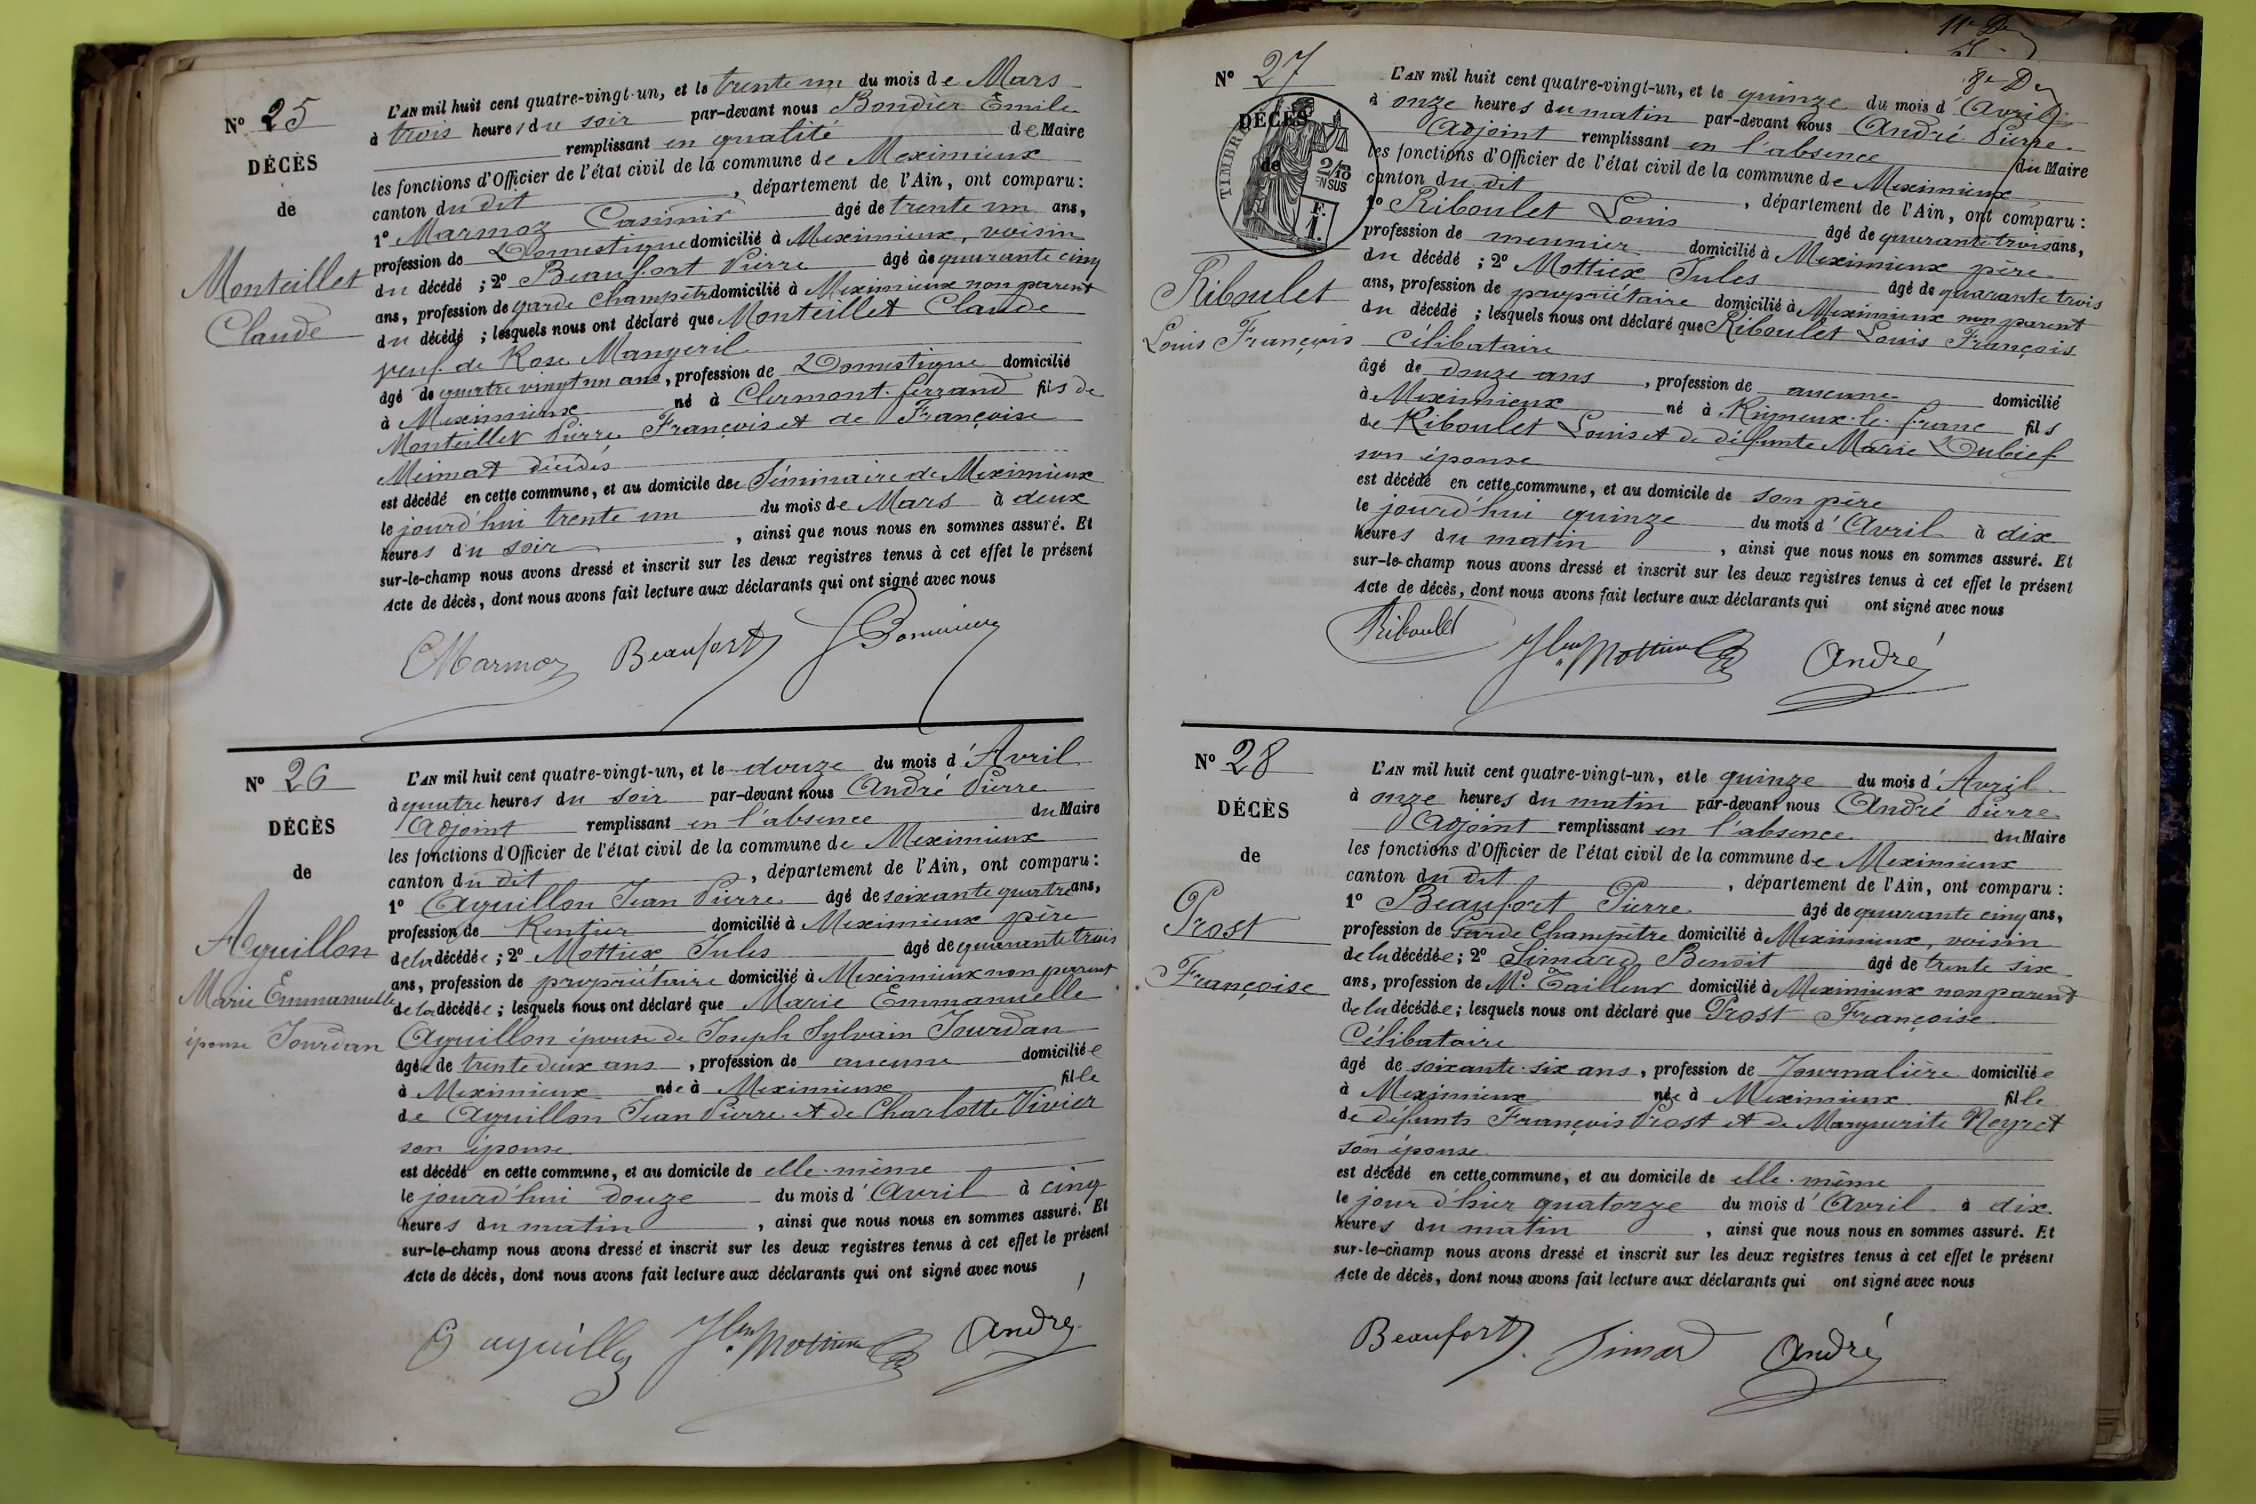 N° 25
DÉCÈS
de
Monteillet
Claude
L'AN mil huit cent quatre-vingt-un, et le trente un du mois de Mars
à trois heures du soir par-devant nous Bondier Emile
remplissant en qualité de Maire
les fonctions d'Officier de l'état civil de la commune de Meximieux
canton du dit, département de l'Ain, ont comparu:
1° Marmoz Casimir âgé de trente un ans,
profession de Domestique domicilié à Meximieux, voisin
du décédé ; 2° Beaufort Pierre âgé de quarante cinq
ans, profession de garde champêtre domicilié à Meximieux non parent
du décédé ; lesquels nous ont déclaré que Monteillet Claude
veuf de Rose Mangeril
âgé de quatre vingt un ans, profession de Domestique domicilié
à Meximieux né à Clermont-ferrand fils de
Monteillet Pierre François et de Françoise
Meimat décédés
est décédé en cette commune, et au domicile de Séminaire de Meximieux
le jourd'hui trente un du mois de Mars à deux
heures du soir, ainsi que nous nous en sommes assuré. Et
sur-le-champ nous avons dressé et inscrit sur les deux registres tenus à cet effet le présent
Acte de décès, dont nous avons fait lecture aux déclarants qui ont signé avec nous
CMarmoz Beaufort
N° 26
DÉCÈS
de
Ayuillon
Marie Emmanuelle
épouse Jourdan
L'AN mil huit cent quatre-vingt-un, et le douze du mois d'Avril
à quatre heures du soir par-devant nous André Pierre
Adjoint remplissant en l'absence du Maire
les fonctions d'Officier de l'état civil de la commune de Meximieux
canton du dit, département de l'Ain, ont comparu:
1° Ayuillon Jean Pierre âgé de soixante quatre ans,
profession de Rentier domicilié à Meximieux père
de la décédée ; 2° Mottiex Jules âgé de quarante trois
ans, profession de propriétaire domicilié à Meximieux non parent
de la décédée ; lesquels nous ont déclaré que Marie Emmanuelle
Ayuillon épouse de Joseph Sylvain Jourdan
âgée de trente deux ans, profession de aucune domiciliée
à Meximieux née à Meximieux fille
de Ayuillon Jean Pierre et de Charlotte Vivier
son épouse
est décédé en cette commune, et au domicile de elle-même
le jourd'hui douze du mois d'Avril à cinq
heures du matin, ainsi que nous nous en sommes assuré. Et
sur-le-champ nous avons dressé et inscrit sur les deux registres tenus à cet effet le présent
Acte de décès, dont nous avons fait lecture aux déclarants qui ont signé avec nous
André
N° 27
DÉCÈS
de
TIMBRE
2/10
EN SUS
F.
1.
Riboulet
Louis François
L'AN mil huit cent quatre-vingt-un, et le quinze du mois d'Avril
à onze heures du matin par-devant nous André Pierre
Adjoint remplissant en l'absence du Maire
les fonctions d'Officier de l'état civil de la commune de Meximieux
canton du dit, département de l'Ain, ont comparu :
1° Riboulet Louis âgé de quarante trois ans,
profession de meunier domicilié à Meximieux père
du décédé ; 2° Mottiex Jules âgé de quarante trois
ans, profession de propriétaire domicilié à Meximieux non parent
du décédé ; lesquels nous ont déclaré que Riboulet Louis François
Célibataire
âgé de douze ans, profession de aucune domicilié
à Meximieux né à Rigneux-le-franc fils
de Riboulet Louis et de défunte Marie Dubief
son épouse
est décédé en cette commune, et au domicile de son père
le jourd'hui quinze du mois d'Avril à dix
heures du matin, ainsi que nous nous en sommes assuré. Et
sur-le-champ nous avons dressé et inscrit sur les deux registres tenus à cet effet le présent
Acte de décès, dont nous avons fait lecture aux déclarants qui ont signé avec nous
Riboulet André
N° 28
DÉCÈS
de
Prost
Françoise
L'AN mil huit cent quatre-vingt-un, et le quinze du mois d'Avril
à onze heures du matin par-devant nous André Pierre
Adjoint remplissant en l'absence du Maire
les fonctions d'Officier de l'état civil de la commune de Meximieux
canton du dit, département de l'Ain, ont comparu :
1° Beaufort Pierre âgé de quarante cinq ans,
profession de Garde Champêtre domicilié à Meximieux, voisin
de la décédée ; 2° Simard Benoit âgé de trente six
ans, profession de Md Tailleur domicilié à Meximieux non parent
de la décédée ; lesquels nous ont déclaré que Prost Françoise
Célibataire
âgé de soixante-six ans, profession de Journalière domiciliée
à Meximieux née à Meximieux fille
de défunts François Prost et de Marguerite Neyret
son épouse
est décédé en cette commune, et au domicile de elle-même
le jour d'hier quatorze du mois d'Avril à dix
heures du matin, ainsi que nous nous en sommes assuré. Et
sur-le-champ nous avons dressé et inscrit sur les deux registres tenus à cet effet le présent
Acte de décès, dont nous avons fait lecture aux déclarants qui ont signé avec nous
Beaufort Simard André